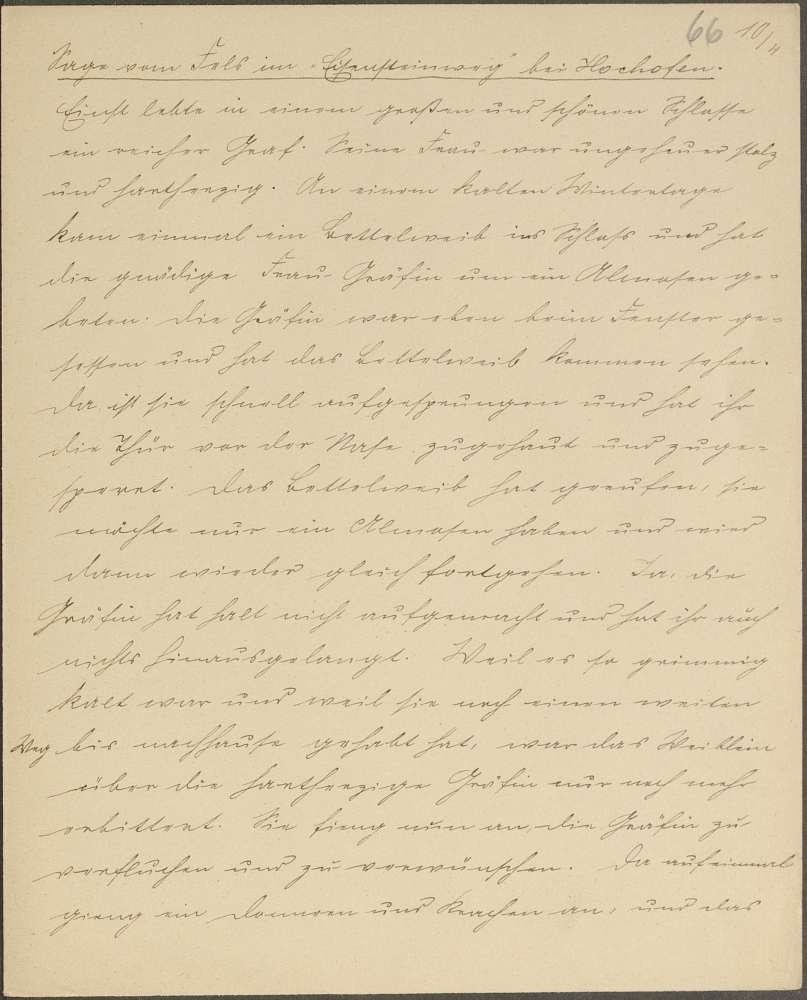 66 10/11
Sage vom Fels im „Eisensteinweg" bei Hochofen.
Einst lebte in einem großen und schönen Schlosse
ein reicher Graf. Seine Frau war ungeheuer stolz
und hartherzig. An einem kalten Wintertage
kam einmal ein Bettelweib ins Schloß und hat
die gnädige Frau Gräfin um ein Almosen ge=
beten. Die Gräfin war eben beim Fenster ge=
sessen und hat das Bettelweib kommen sehen.
Da ist sie schnell aufgesprungen und hat ihr
die Thür vor der Nase zugehaut und zuge=
sperrt. Das Bettelweib hat gerufen, sie
möchte nur ein Almosen haben und wird
dann wieder gleich fortgehen. Ja, die
Gräfin hat halt nicht aufgemacht und hat ihr auch
nichts hinausgelangt. Weil es so grimmig
kalt war und weil sie noch einen weiten
Weg bis nachhause gehabt hat, war das Weiblein
über die hartherzige Gräfin nur noch mehr
erbittert. Sie fieng nun an, die Gräfin zu
verfluchen und zu verwünschen. Da auf einmal
gieng ein Donnern und Krachen an, und das